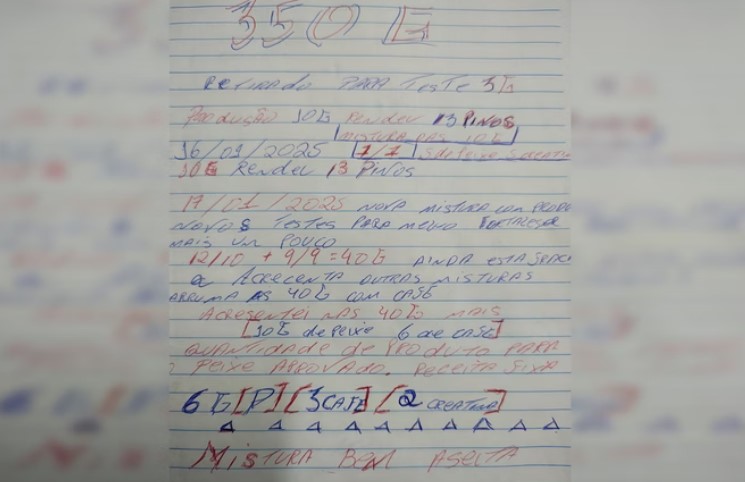 350 G
RETIRADO PARA TESTE 5G
PRODUÇÃO 10G RENDEU 13 PINOS
MISTURA DAS 10G
16/01/2025 1/1
10G RendeU 13 PINOS
17/01/2025 NOVA MISTURA COM
NOVOS TESTES PARA MELHO FORTALECER
MAIS UM POUCO
12/10 + 9/9 = 40G AINDA ESTA
ACRECENTA OUTRAS MISTURAS
ARRUMA AS 40G COM CAFE
ACRESENTEI NAS 40G MAIS
[10G de Peixe 6 de CAFE]
QUANTIDADE de PRODUTO PARA
PEIXE APROVADO. RECEITA FIXA
6 G [P] [3 CAFE] [2 CREATINA]
MISTURA BEM ASEITA